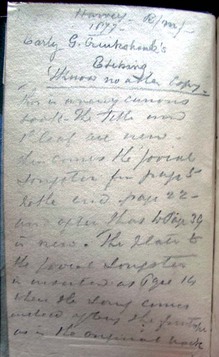 Harvey
1877
Early G. Cruikshank's
Etching
I Know no other Copy.
This is a very curious
book - The title and
1st leaf are new.
then comes the Jovial
Songster from page 5
to the end page 22 -
and after that to Page 39
is new. The Plate to
the Jovial Songster
is inserted at Page 14
where the Song comes
instead of facing the
as in the original work